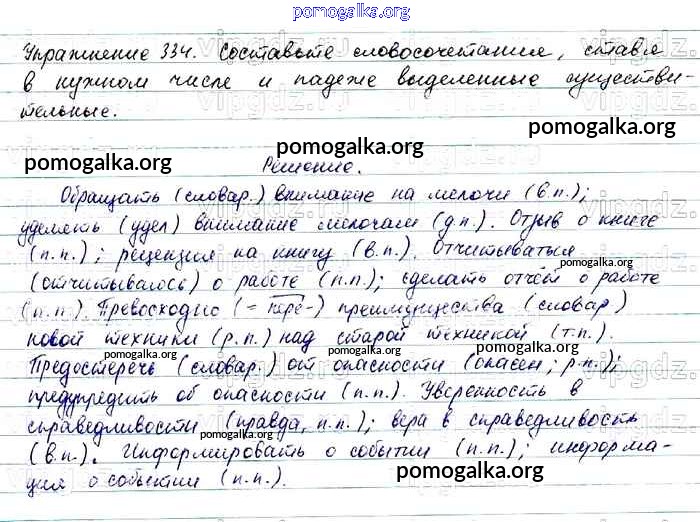 pomogalka.org
Упражнение 334. Составьте словосочетания, ставя
в нужном числе и падеже выделенные существи-
тельные.
pomogalka.org
pomogalka.org
Решение.
Обращать (словар.) внимание на мелочи (в.п.);
уделять (удел) внимание мелочам (д.п.). Отзыв о книге
pomogalka.org
(п.п.); рецензия на книгу (в.п.). Отчитываться
pomogalka.org
(отчитывалось) о работе (п.п.); сделать отчёт о работе
(п.п.). Превосходно (=пере-) преимущества (словар)
pomogalka.org
новой техники (р.п.) над старой техникой (т.п.).
pomogalka.org
pomogalka.org
Предостеречь (словар.) от опасности (опасен; р.п.);
предупредить об опасности (п.п.). Уверенность в
справедливости (правда, п.п.); вера в справедливость
pomogalka.org
(в.п.). Информировать о событии (п.п.); информа-
ция о событии (п.п.).
pomogalka.org